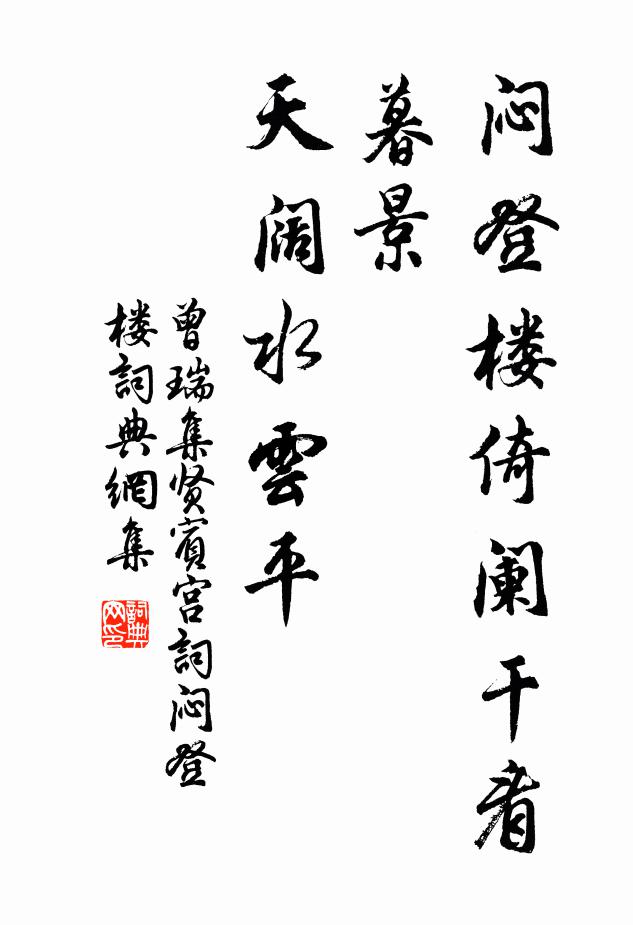 闷登楼倚阑干看
暮景
天阔水雲平
曾瑞集贤宾宫詞闷登
楼詞典網集
詞典
网印